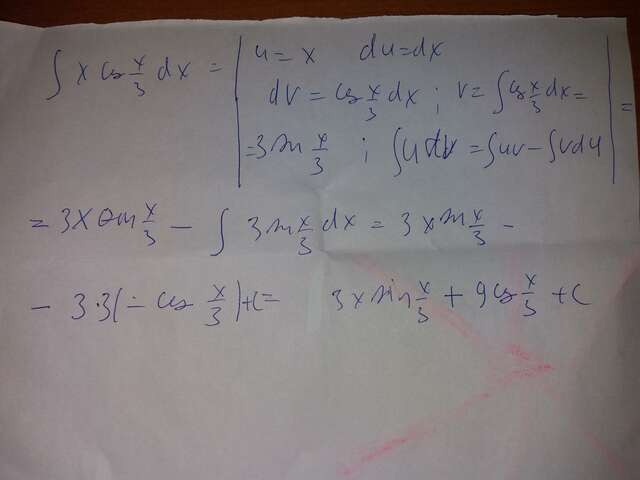 ∫ x cos x/3 dx = | u = x du = dx
dv = cos x/3 dx ; v = ∫ cos x/3 dx =
= 3 sin x/3 ; ∫ u dv = ∫ uv − ∫ v du | =
= 3x sin x/3 − ∫ 3 sin x/3 dx = 3x sin x/3 −
− 3·3(− cos x/3) + C = 3x sin x/3 + 9 cos x/3 + C